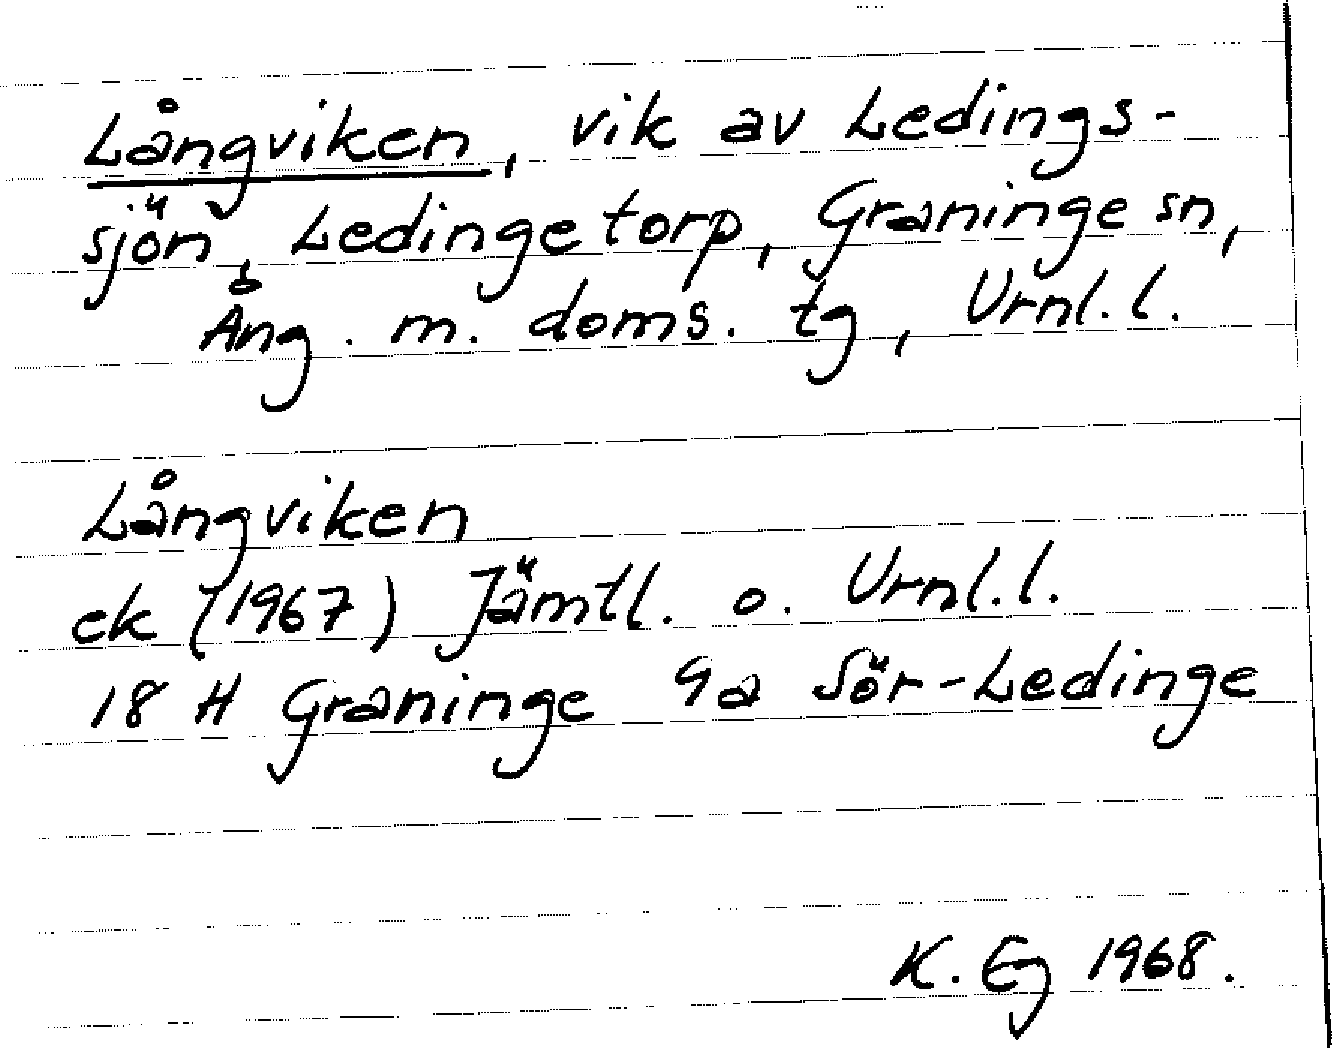 Långviken, vik av Ledings-
sjön, Ledingetorp, Graninge sn,
Ång. m. doms. tg, Vrnl. l.
Långviken
ek (1967) Jämtl. o. Vrnl. l.
18 H Graninge 9a Sör-Ledinge
K. Eg 1968.